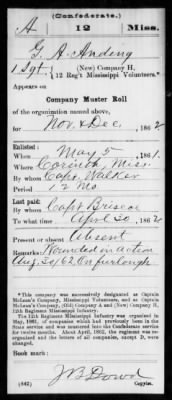 (Confederate.)
A 12 Miss.
G. A. Andeng
1 Sgt, (New) Company H,
12 Reg't Mississippi Volunteers.*
Appears on
Company Muster Roll
of the organization named above,
for Nov & Dec, 1862.
Enlisted:
When May 5, 1861.
Where Corinth, Miss.
By whom Capt. Walker
Period 12 Mo.
Last paid:
By whom Capt Briscoe
To what time April 30, 1862.
Present or absent Absent
Remarks: Wounded in action
Aug. 30/62 On furlough
*This company was successively designated as Captain
McLean's Company, Mississippi Volunteers, and as Captain
McLean's Company, (Old) Company A and (New) Company H,
12th Regiment Mississippi Infantry.
The 12th Regiment Mississippi Infantry was organized in
May, 1861, of companies which had previously been in the
State service and were mustered into the Confederate service
for twelve months. About April, 1862, the regiment was re-
organized and the letters of all companies, except D, were
changed.
Book mark:
(642) J B Dowd
Copyist.